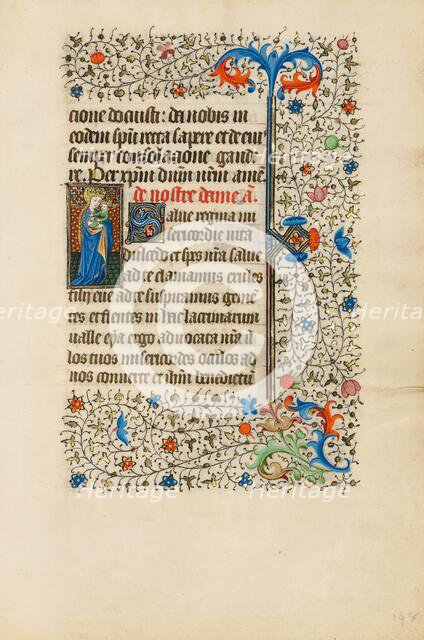 cione docuisti: da nobis in
eodem spū recta sapere et de eiꝰ
semper consolacione gaude
re. Per xp̄m dnm̄ nrm̄ amē.
de nostre dame ā.
Salue regina mi
sericordie uita
dulcedo et spes nr̄a salue
ad te clamamus exules
filij eue ad te suspiramus geme
tes et flentes in hac lacrimarum
ualle eya ergo aduocata nr̄a il
los tuos misericordes oculos ad
nos conuerte et ihm̄ benedictū
198
Heritage
Heritage
Heritage
Heritage